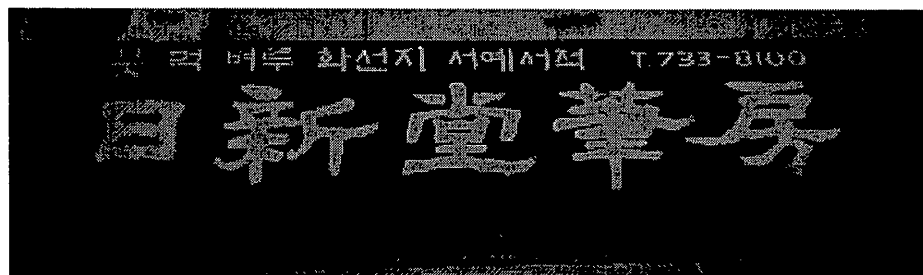 붓 먹 벼루 화선지 서예서적 T.733-8100
日新堂筆房